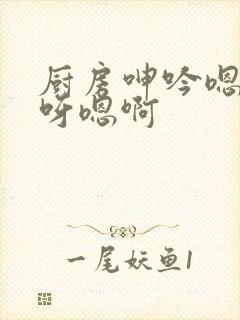 厨房呻吟嗯
呀嗯啊
一尾妖鱼1